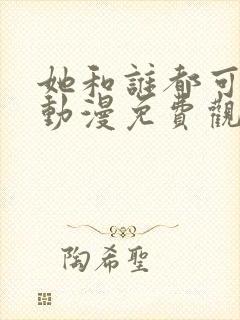 她和誰都可
動漫免費觀
陶希聖